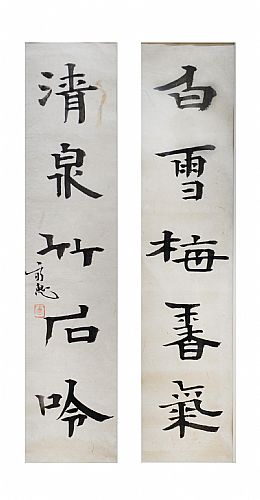 白雪梅香氣
清泉竹石吟